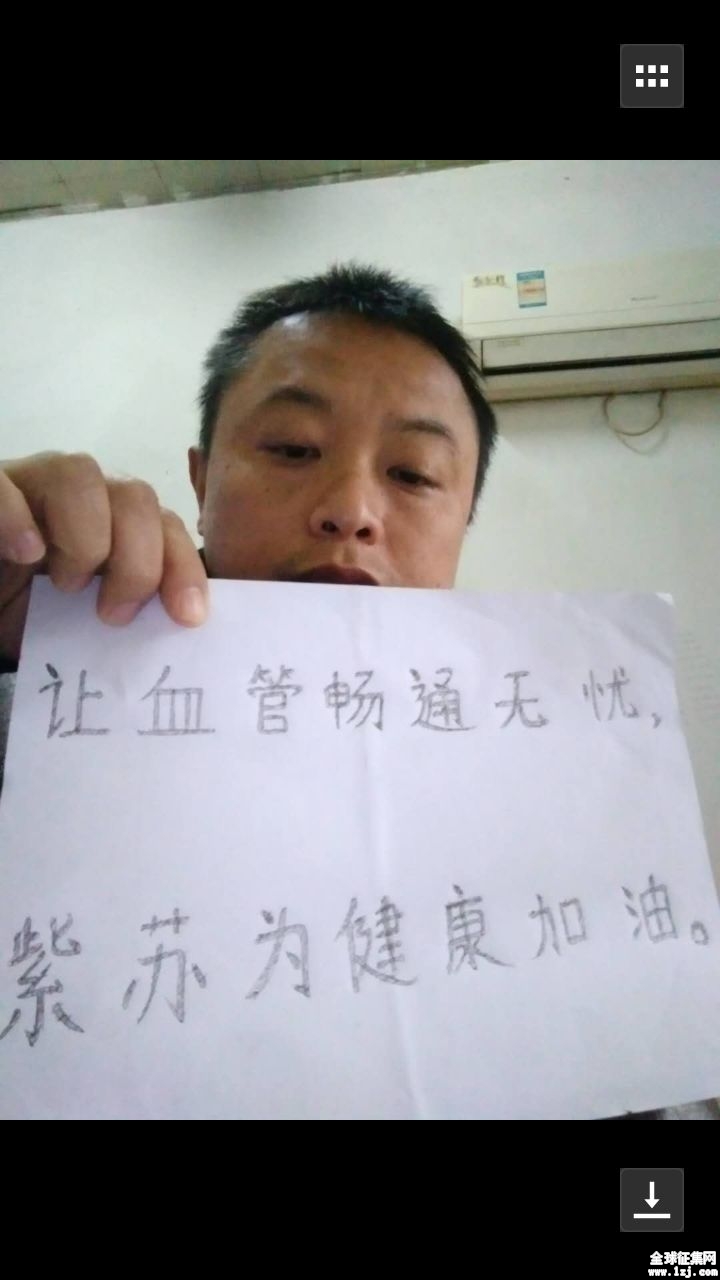 让血管畅通无忧,
紫苏为健康加油。
全球征集网
www.1zj.com